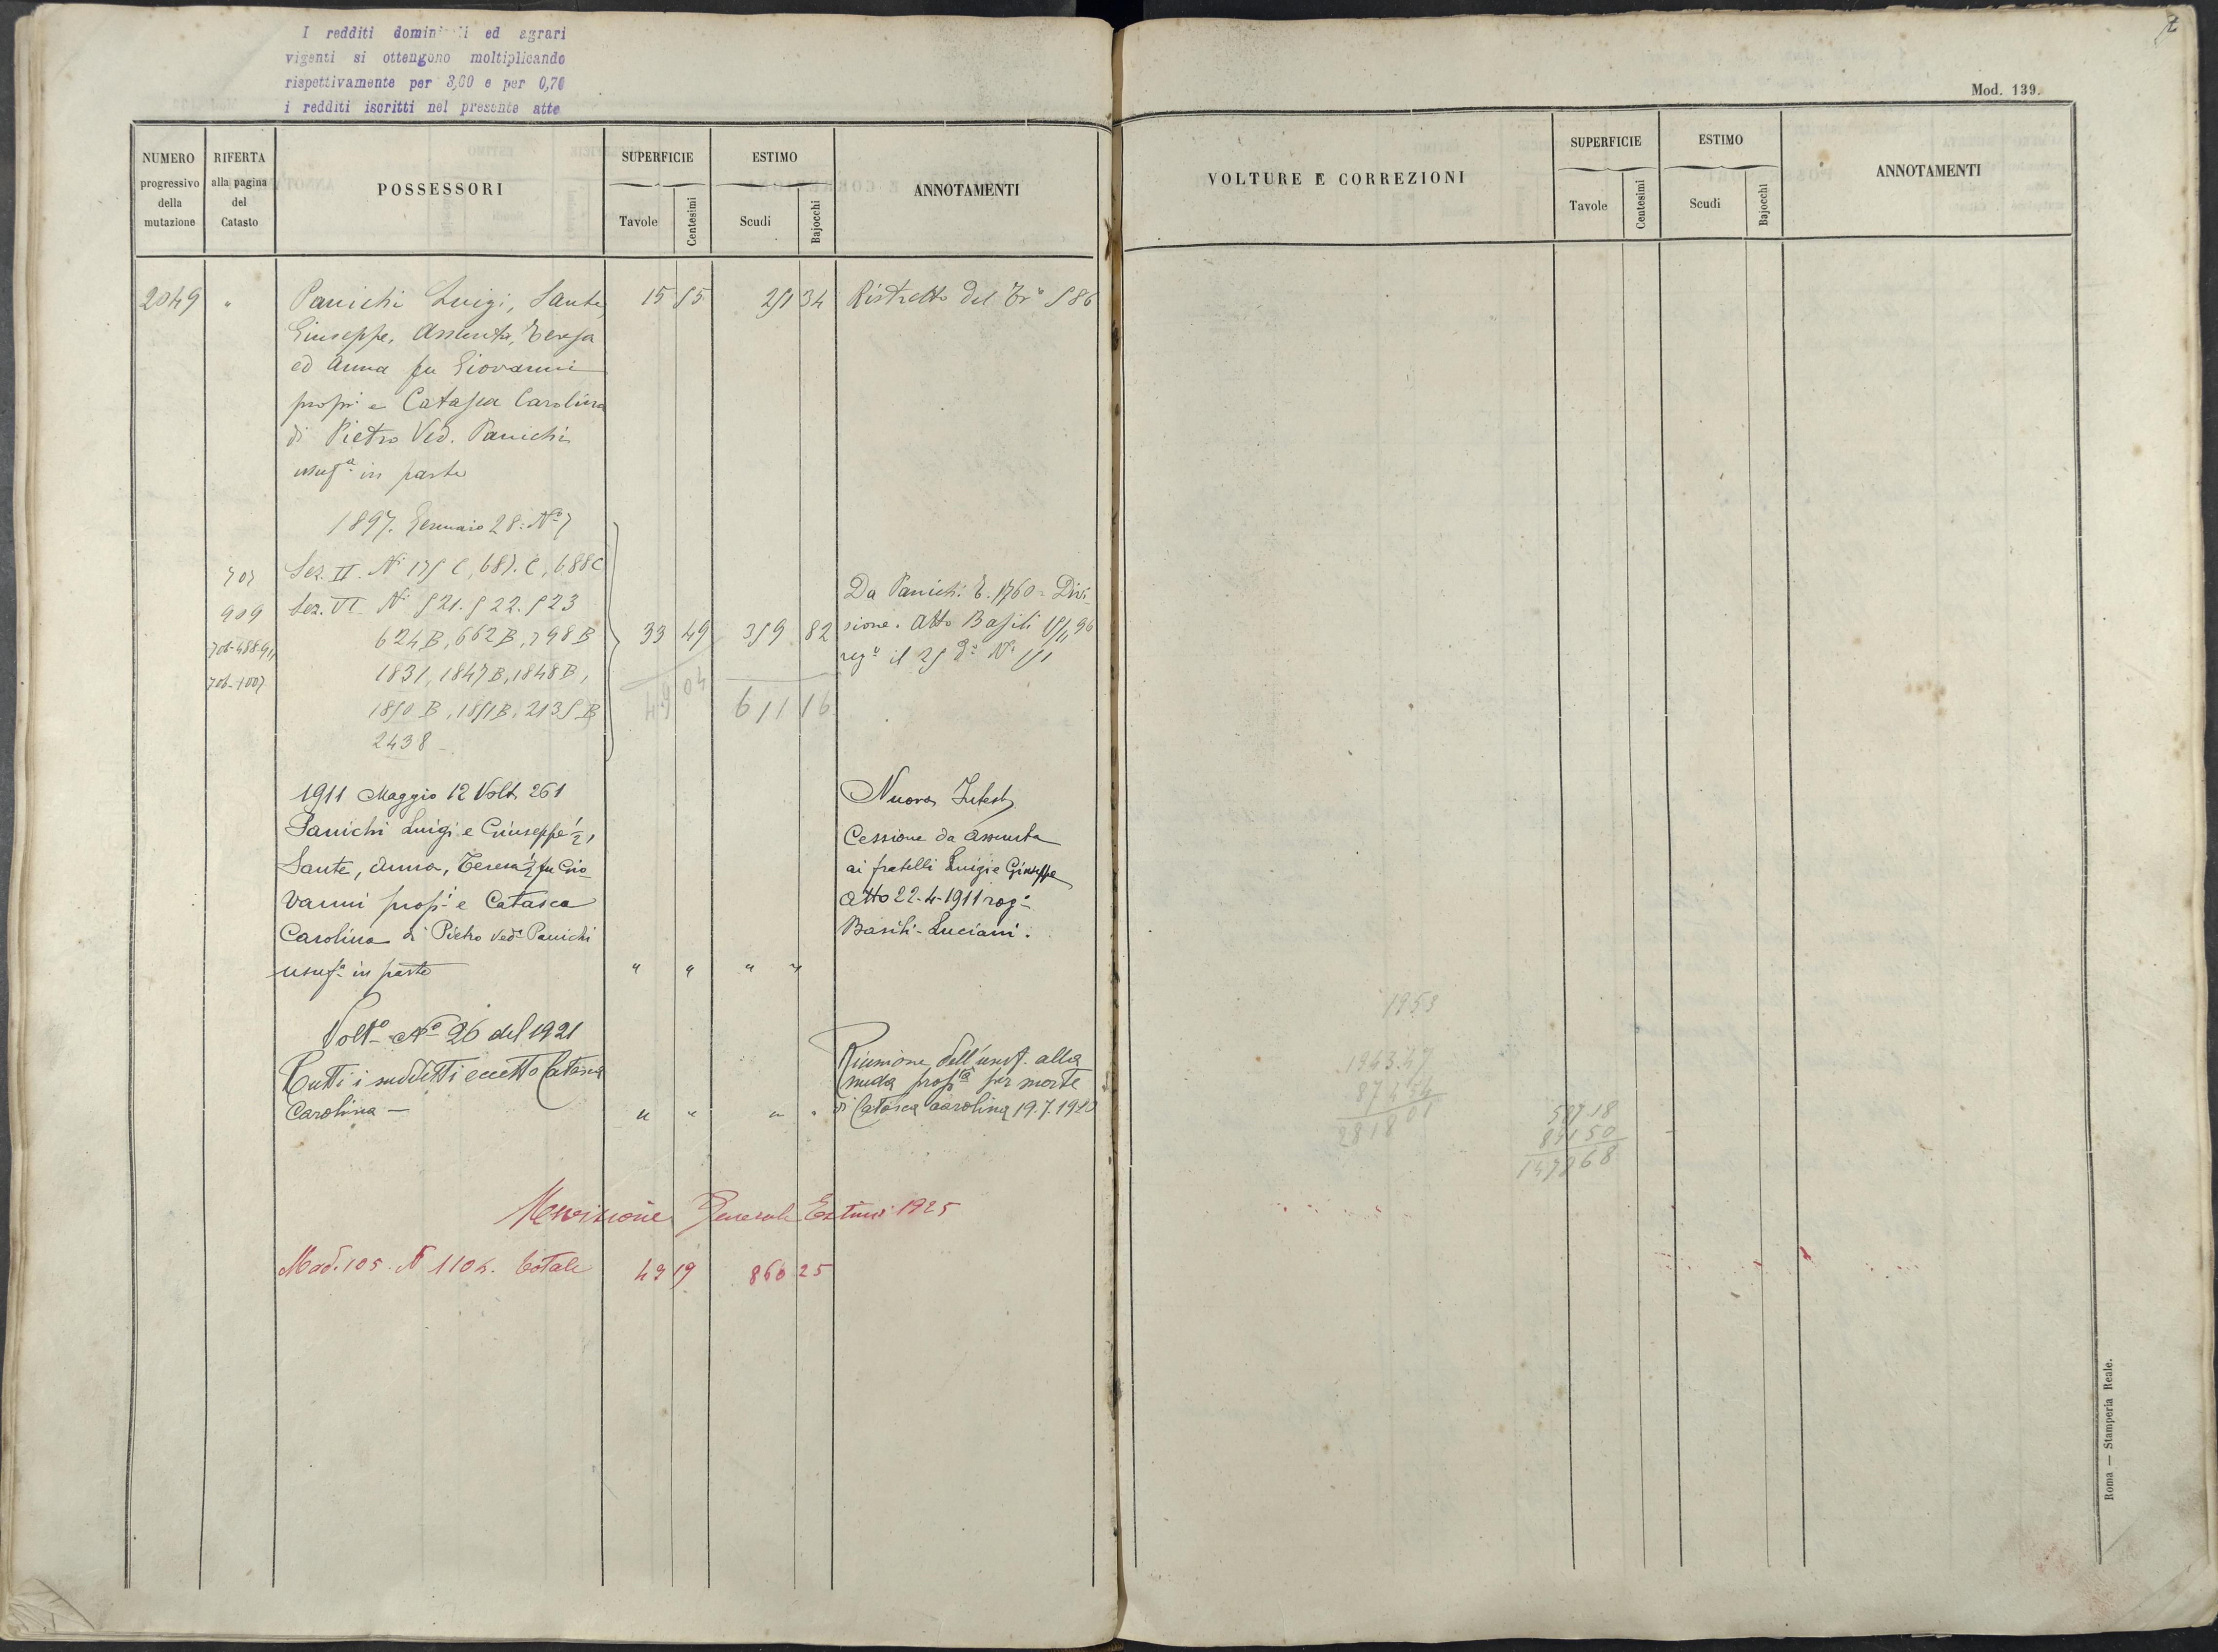 I redditi dominicali ed agrari
vigenti si ottengono moltiplicando
rispettivamente per 3,60 e per 0,70
i redditi iscritti nel presente atto
NUMERO progressivo della mutazione
RIFERTA alla pagina del Catasto
POSSESSORI
SUPERFICIE
Tavole
Centesimi
ESTIMO
Scudi
Bajocchi
ANNOTAMENTI
2049 " Panichi Luigi, Sante, 15 55 251 34 Ristretto del Tr.º 586
Giuseppe, Assunta, Teresa
ed Anna fu Giovanni
propr.i e Catasca Carolina
di Pietro Ved. Panichi
usuf.a in parte
1897. Gennaio 28. Nº 7
707 Sez. II. Nº 175 C, 687. C, 688 C
909 Sez. VI Nº 521. 522. 523
706-488-911 624 B, 662 B, 798 B 33 49 359 82
706-1007 1831, 1847 B, 1848 B,
1850 B, 1851 B, 2135 B 49 04 611 16
2438 -
Da Panichi T. 1760 = Divi-
sione. Atto Basili 15/11 96
reg.º il 25 dº Nº 151
1911 Maggio 12 Volt. 261
Panichi Luigi e Giuseppe 1/2,
Sante, Anna, Teresa 1/2 fu Gio-
vanni prop.i e Catasca
Carolina di Pietro ved.a Panichi
usuf.a in parte " " " "
Nuova Intest.
Cessione da Assunta
ai fratelli Luigi e Giuseppe
Atto 22-4-1911 rog.
Basili-Luciani.
Volt.a Nº 26 del 1921
Tutti i suddetti eccetto Catasca
Carolina — " " " "
Riunione dell'usuf. alla
nuda prop.tà per morte
di Catasca Carolina 19.7.1920
Revisione Generale Estimi 1925
Mod. 105. N 1104. Totale 49 19 860 25
Mod. 139.
VOLTURE E CORREZIONI
SUPERFICIE
Tavole
Centesimi
ESTIMO
Scudi
Bajocchi
ANNOTAMENTI
1953
1943.47
874 54
2818 01
587 18
891 50
1478 68
Roma — Stamperia Reale.